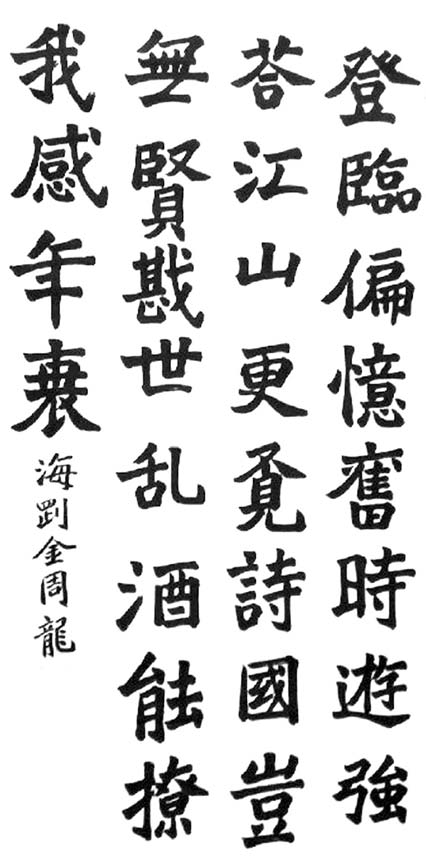 登臨偏憶舊時遊強
荅江山更覓詩國豈
無賢戡世乱酒能撩
我感年衰
海剛金周龍